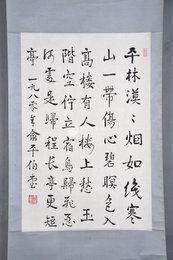 平林漠漠烟如织寒
山一带傷心碧暝色入
高楼有人楼上愁玉
階空佇立宿鳥歸飛急
何處是歸程長亭更短
亭 一九八零年俞平伯書